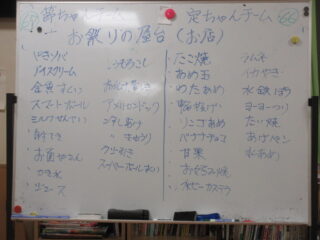 ちゃんチーム
定ちゃんチーム
お祭りの屋台(お店)
やきソバ
アイスクリーム
金魚すくい
スマートボール
ミルクせんべい
射てき
お面やさん
かき氷
ジュース
とうもろこし
おばけ屋敷
アメリカンドッグ
きゅうり
くじ引き
スーパーボールすくい
たこ焼
あめ玉
わたあめ
輪投げ
りんごあめ
バナナチョコ
甘栗
お好み焼
ベビーカステラ
ラムネ
イカやき
水鉄ぽう
ヨーヨーつり
たい焼
あげパン
水あめ